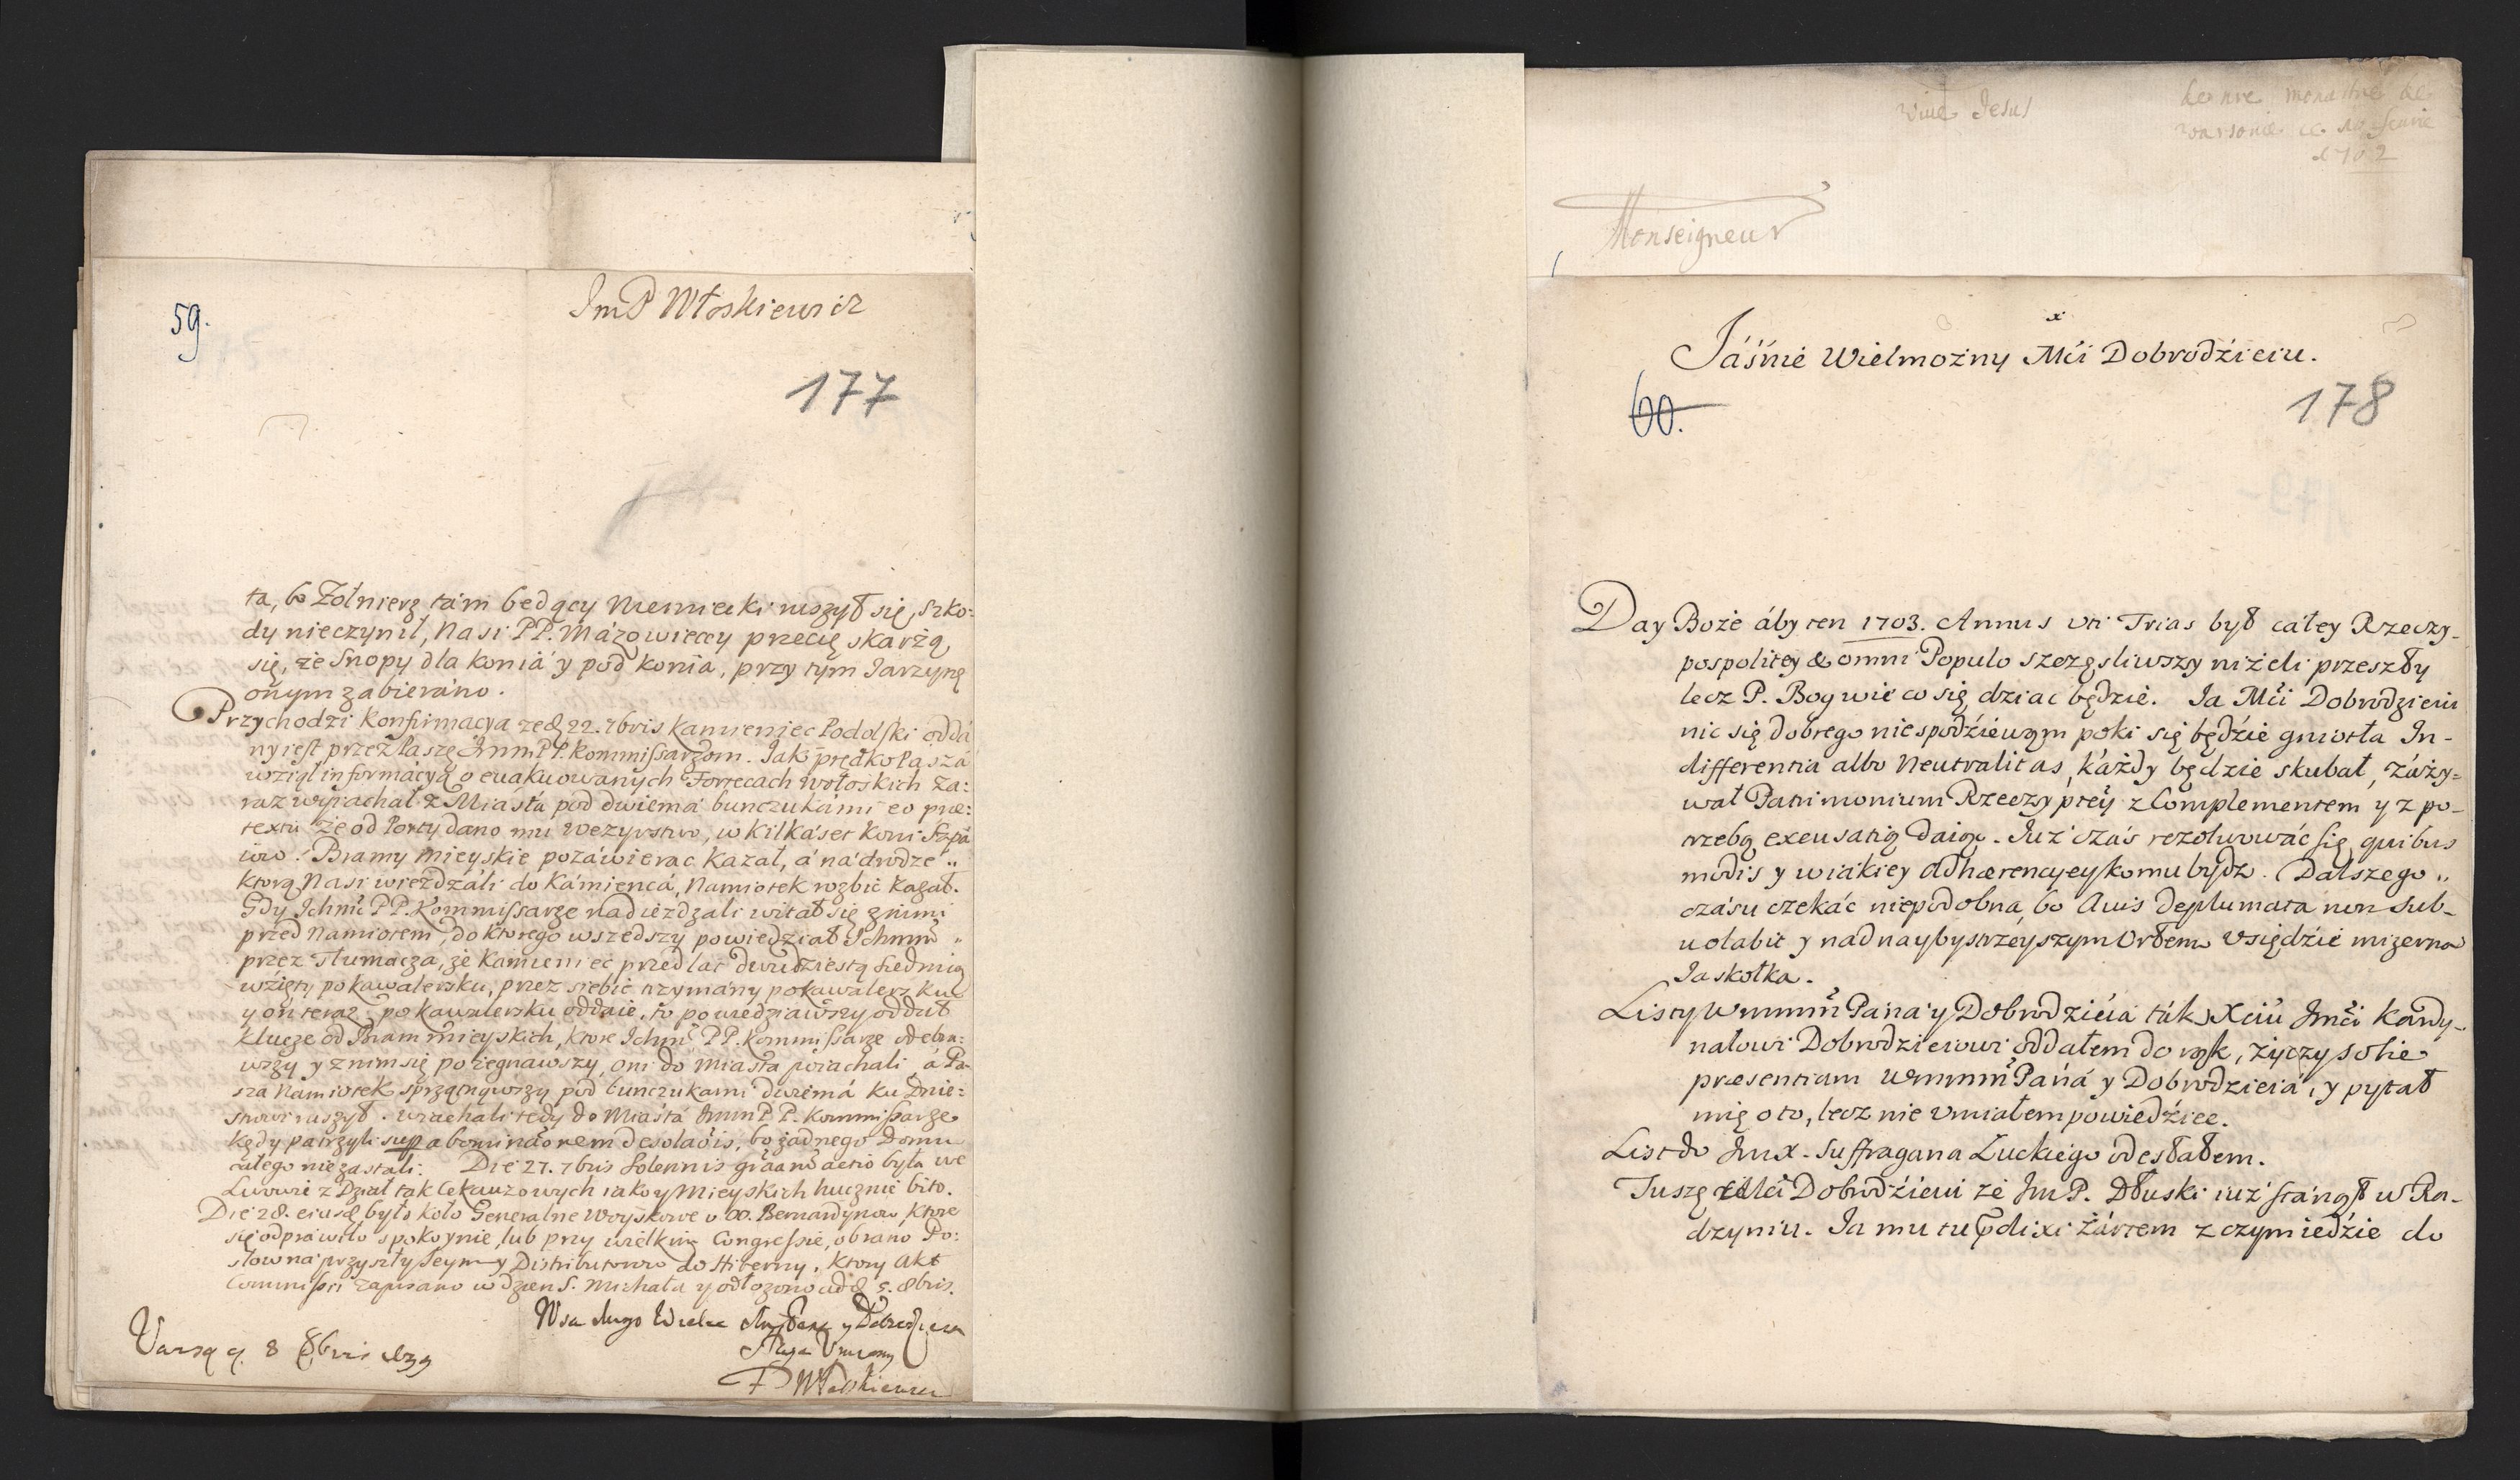 59.
JmP Włoskiewicz
177
ta, bo Zołnierz tám będący Niemiecki ruszył się, szko-
dy nieczynił, Nasi PP. Mázowieccy przecię skarżą
się, że Snopy dla koniá y pod konia, przy tym Jarzynę
onym zabieráno.
Przychodzi Konfirmacya že d. 22. 7bris Kamieniec Podolski oddá
ny iest przez Paszę JmmPP. Kommissarzom. Jak prędko Paszá
wziął informácyą o euakuowanych Fortecach wołoskich Za:
raz wyiachał z Miástá pod dwiemá bunczukámi eo præ:
textu że od Porty dano mu Wezyrstwo, w kilkáset koni Szpá
iow. Bramy mieyskie pozáwierac kazał, á ná drodze
ktorą Nasi wieżdzáli do Kámiencá, Namiotek rozbić kazał.
Gdy Ichmć PP. Kommissarze nadieżdzali witał się z nimi
przed Namiotem, do ktorego wszedszy powiedział Ichmm
przez Tłumacza, że Kamieniec przed lat dwudziestą siedmią
wzięty po kawalersku, przez siebie trzymány po kawalersku
y on teraz po kawalersku oddaie, to powiedziawszy oddał
klucze od Bram mieyskich, ktore Ichmć PP. Kommissarze odebra:
wszy y z nim się pożegnawszy, oni do Miasta poiachali, á Pa-
sza Namiotek sprzątnąwszy pod bunczukami dwiemá ku Dnie:
strowi ruszył. Wiachali tedy do Miástá JmmPP. Kommissarze
kędy patrzyli sup abominaoem desolaois, bo żadnego Domu
całego nie zastali. Die 27. 7bris Solennis graarũ actio była we
Lwowie z Dział tak Cekauzowych iako y Mieyskich hucznie bito.
Die 28. eiusd było koło Generalne Woyskowe u OO. Bernardynow, ktore
się odpráwiło spokoynie, lub przy wielkim Congressie, obrano Po:
słow na przyszły Seym y Distributorow do Hiberny, ktory Akt
Commissri zapisano w dzien S. Michała y odłożono ad d. 5. 8bris.
Varsa 8 8bris 1699
Sługa
P Włoskiewicz
Vive Jesus
de nre monastre de
1702
Monseigneur
Jáśnie Wielmożny Mći Dobrodźieiu.
60.
178
Day Boże áby ten 1703. Annus uti Trias był całey Rzeczy-
pospolitey & omni Populo szczęsliwszy niżeli przeszły
lecz P. Bog wie co się dziac będzie. Ja Mći Dobrodzieiu
nic się dobrego niespodźiewam poki się będźie gniotła In-
differentia albo Neutralitas, káżdy będzie skubał, záży=
wał Patrimonium Rzeczyptey z Complementem y z po-
trzebą excusatią daią. Już czás rezolwowáć się quibus
modis y w iákiey Adhærencyey komu bydz. Dalszego
czásu czekáć niepodobna, bo Auis deplumata non sub-
uolabit y nad naybystrzeyszym Orłem usiędźie mizerna
Jaskołka.
Listy Wmmm Pána y Dobrodzieia ták Xciu Jmći kardy-
nałowi Dobrodzieiowi oddałem do rąk, życzy sobie
præsentiam Wmmm Páná y Dobrodzieiá, y pytał
mię o to, lecz nie umiałem powiedźiec.
List do Jmx. Suffragana Łuckiego odesłałem.
Tuszę Mći Dobrodźieiu że JmP. Dłuski iuż stánął w Ra-
dzyniu. Ja mu tu prdixi żártem z czym iedźie do